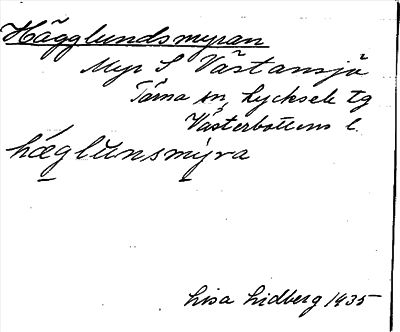 Hägglundsmyran
Myr S Västansjö
Tärna sn, Lycksele tg
Västerbottens l.
hæglŭnsmýra
Lisa Lidberg 1935